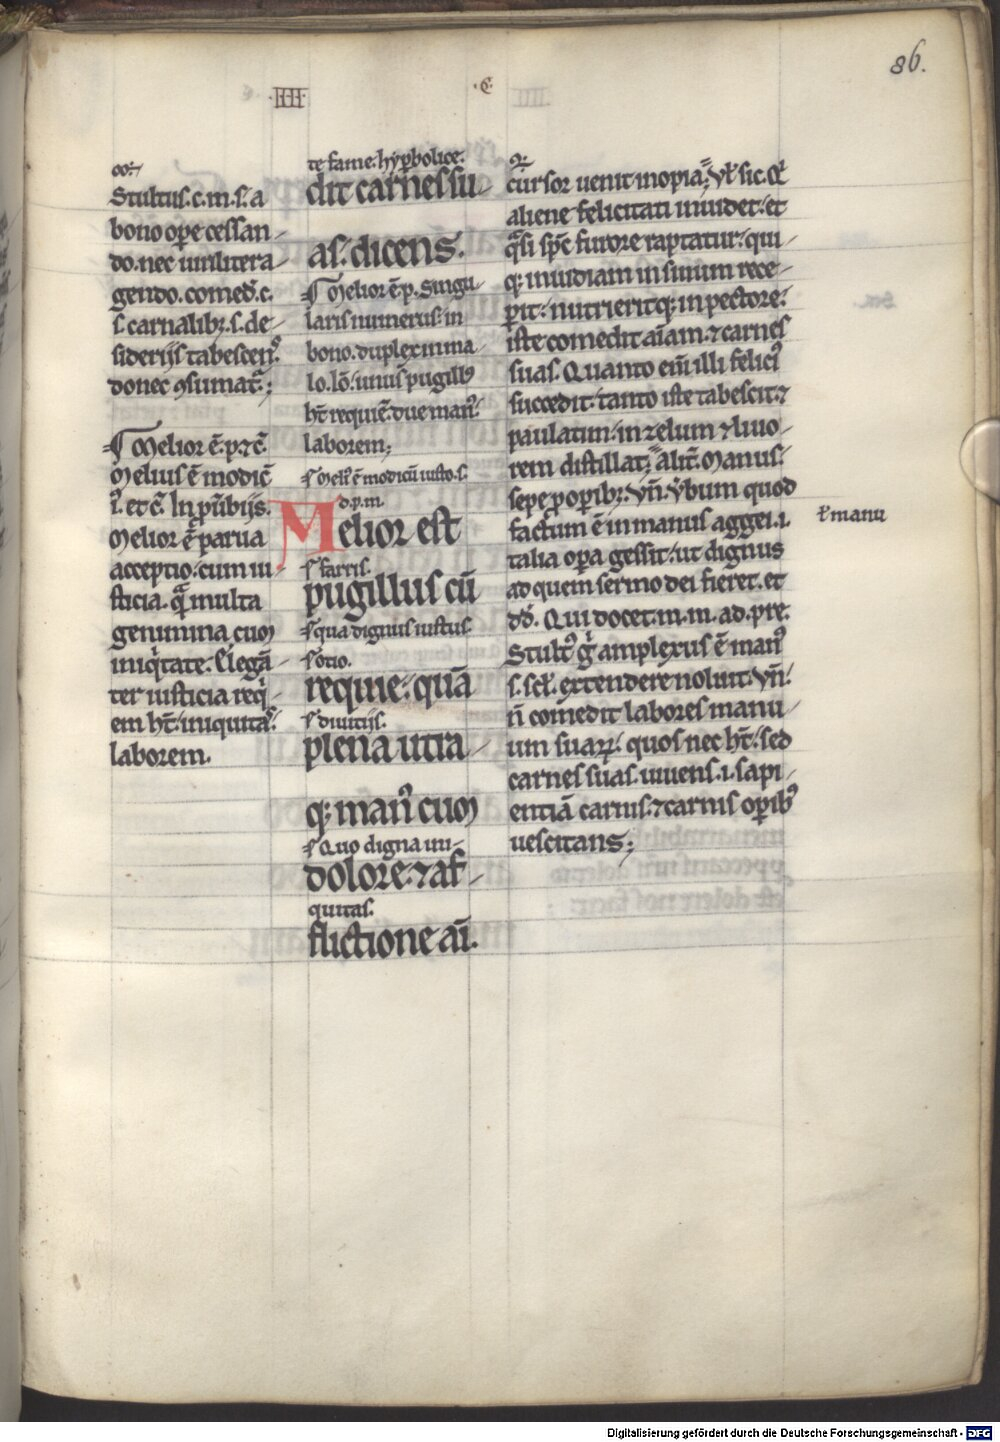 86.
IIII
.C.
Stultus.c.m.s.a
bono opere cessan-
do.nec uiriliter a-
gendo.comed̄.c.
s.carnalibꝫ.s.de-
siderijs tabescen᷒.
donec ꝯsumat᷑;
Melior ē.p.⁊c̄.
Melius ē modic̄
i᷒. et c̄. In ꝓu̾biis.
Melior ē parua
acceptio.cum iu-
sticia.qͣ multa
genimina cum
iniqͥtate. Elegā-
ter iusticia reqͥ-
em ht̄.iniquitas.
laborem.
te fame.hyꝑbolice.
dit carnes su-
as.dicens.
Melior ē.p. Singu-
laris numerus.in
bono.duplex in ma-
lo.Iō.unus pugillꝰ
ht̄ requiē.due manꝰ.
laborem;
Melꝰ ē modicū iusto.s.
d.p.m.
Melior est
s farris.
pugillus cū
s qua dignus iustus.
s otio.
requie.quā
s diuitijs.
plena utra-
qꝫ manꝰ cum
s Quo digna ini-
dolore.⁊ af-
quitas.
flictione ai᷒.
cursor uenit inopia; Vl̾ sic. Qͥ
aliene felicitati inuidet.et
qͣsi sp̄c furore raptatur.qui-
qꝫ inuidiam in sinum rece-
ꝑit.nutrieritqꝫ in pectore.
iste comedit ai᷒am.⁊ carnes
suas. Quanto em̄ illi felicꝰ
succedit.tanto iste tabescit.⁊
paulatim.in zelum ⁊ liuo-
rem distillat; alit̾. Manus.
sepe ꝓ oꝑibꝫ. Vn̄. v̾bum quod
factum ē in manus aggei.i.
ł manu
talia oꝑa gessit.ut dignus
ad quem sermo dei fieret.et
dd̄. Qui docet.m.m.ad.pre.
Stultꝰ gͦ amplexus ē manꝰ
s.scł.extendere noluit. Vn̄.
n̄ comedit labores manu-
um suaꝝ.quos nec ht̄.sed
carnes suas.uiuens.i.sapi-
entiā carnis.⁊ carnis oꝑibꝰ
uescitans;